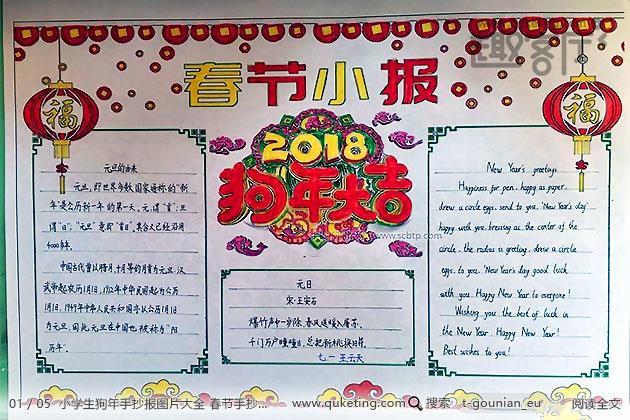 趣客IT
春节小报
2018
狗年大吉
福
福
www.scbtp.com
元旦的由来
元旦，即世界多数国家通称的“新
年”是公历新一年的第一天。元，谓“首”；旦
谓“日”；“元旦”意即“首日”。其含义已经沿用
4000多年。
中国古代曾以腊月、十月等的月首为元旦，汉
武帝起农历1月1日，1912年中华民国起为公历
1月1日，1949年中华人民共和国亦以公历1月1日
为元旦，因此元旦在中国也被称为“阳
历年”。
元日
宋·王安石
爆竹声中一岁除，春风送暖入屠苏。
千门万户曈曈日，总把新桃换旧符。
七一 王云天
New Year's greetings
Happiness for pen, happy as paper
draw a circle eggs, send to you, 'New Year's day
happy with you, blessing as the center of the
circle, the radius is greeting, draw a circle
eggs, to you, 'New Year's day good luck
with you. Happy New Year to everyone!
Wishing you the best of luck in
the New Year. Happy New Year!
Best wishes to you!
01 / 05 小学生狗年手抄报图片大全 春节手抄...
www.quketing.com
搜索
t-gounian_eu
阅读全文